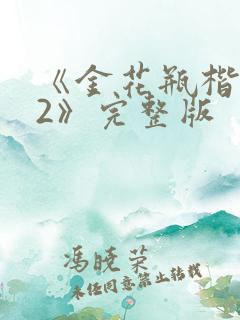 《金花瓶楷
2》完整版
冯晓荣
未任同意禁止转载